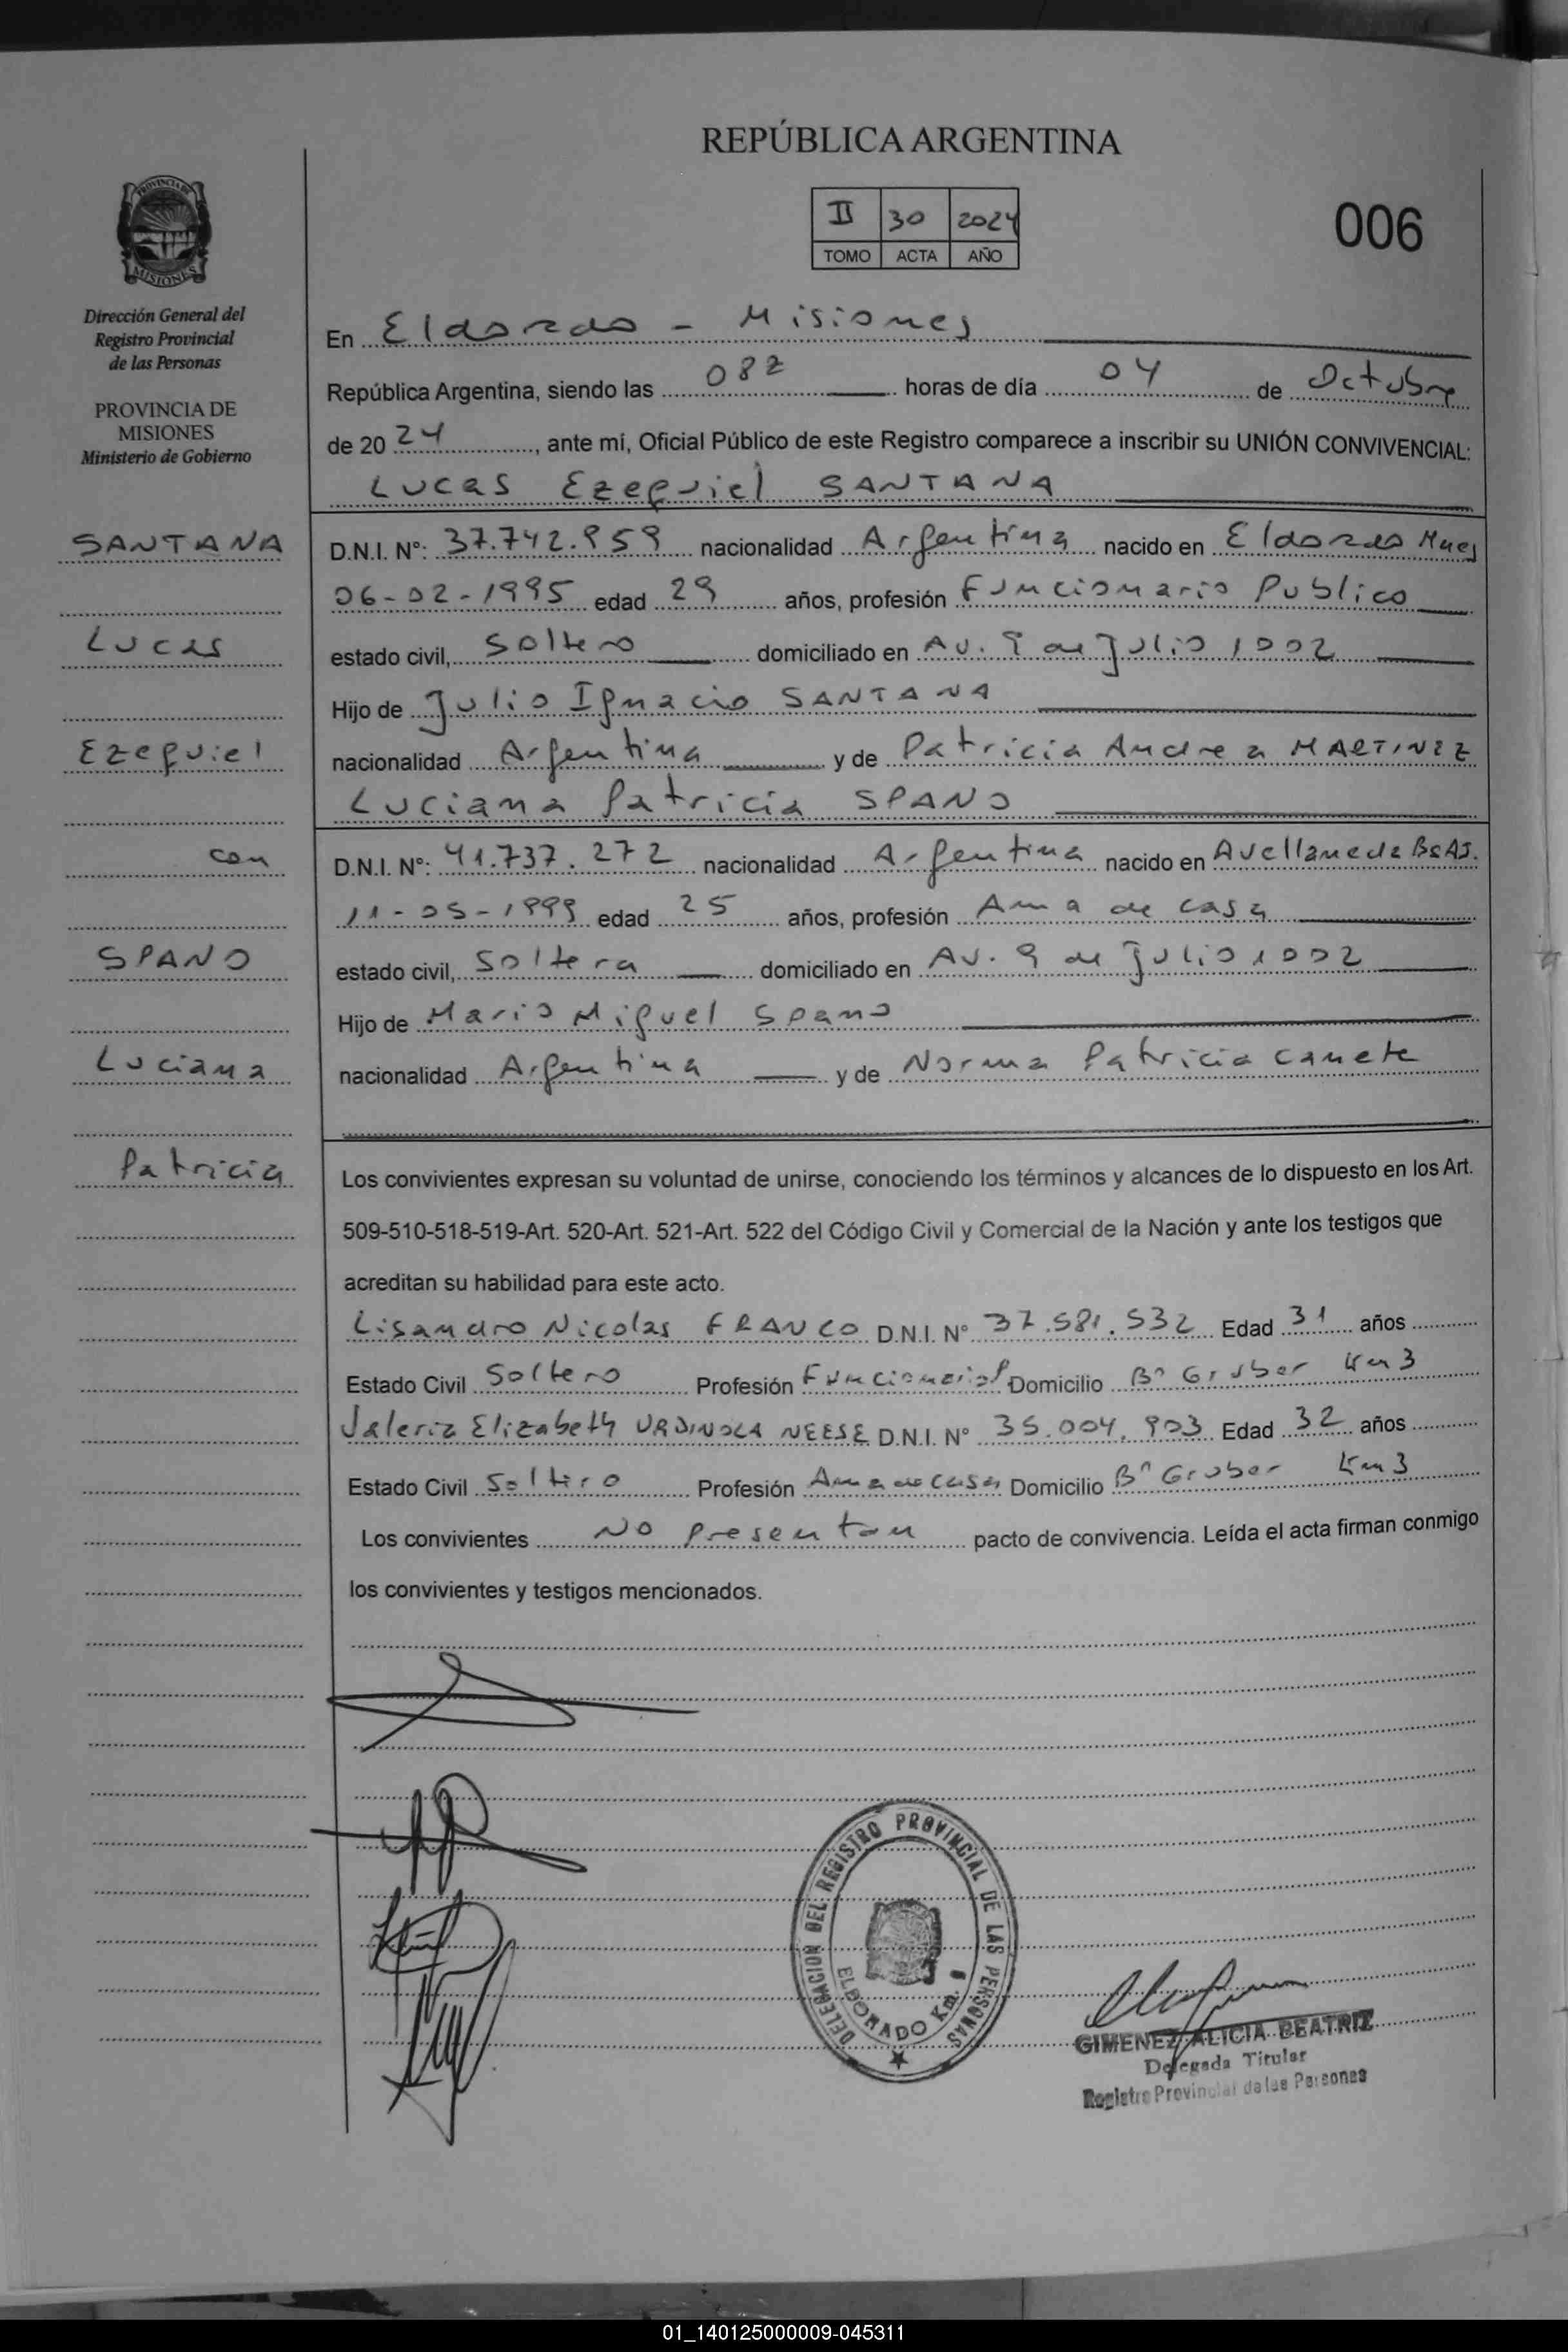 REPÚBLICA ARGENTINA
II 30 2024
TOMO ACTA AÑO
006
PROVINCIA DE
MISIONES
Dirección General del
Registro Provincial
de las Personas
PROVINCIA DE
MISIONES
Ministerio de Gobierno
SANTANA
Lucas
Ezequiel
con
SPANO
Luciana
Patricia
En Eldorado - Misiones
República Argentina, siendo las 08z horas de día 04 de Octubre
de 20 24, ante mí, Oficial Público de este Registro comparece a inscribir su UNIÓN CONVIVENCIAL:
Lucas Ezequiel SANTANA
D.N.I. Nº: 37.742.959 nacionalidad Argentina nacido en Eldorado Mnes
06-02-1995 edad 29 años, profesión Funcionario Publico
estado civil, Soltero domiciliado en Av. 9 de Julio 1002
Hijo de Julio Ignacio SANTANA
nacionalidad Argentina y de Patricia Andrea MARTINEZ
Luciana Patricia SPANO
D.N.I. Nº: 41.737.272 nacionalidad Argentina nacido en Avellaneda Bs As.
11-05-1999 edad 25 años, profesión Ama de casa
estado civil, Soltera domiciliado en Av. 9 de Julio 1002
Hijo de Mario Miguel Spano
nacionalidad Argentina y de Norma Patricia Canete
Los convivientes expresan su voluntad de unirse, conociendo los términos y alcances de lo dispuesto en los Art.
509-510-518-519-Art. 520-Art. 521-Art. 522 del Código Civil y Comercial de la Nación y ante los testigos que
acreditan su habilidad para este acto.
Lisandro Nicolas FRANCO D.N.I. Nº 37.581.532 Edad 31 años
Estado Civil Soltero Profesión Domicilio Bº Gruber Km 3
Valeria Elizabeth URDINOLA NEESE D.N.I. Nº 35.004.903 Edad 32 años
Estado Civil Soltiro Profesión Ama de casa Domicilio Bº Gruber Km 3
Los convivientes No presentan pacto de convivencia. Leída el acta firman conmigo
los convivientes y testigos mencionados.
DELEGACION DEL REGISTRO PROVINCIAL DE LAS PERSONAS
ELDORADO Km.
GIMENEZ ALICIA BEATRIZ
Delegada Titular
Registro Provincial de las Personas
01_140125000009-045311